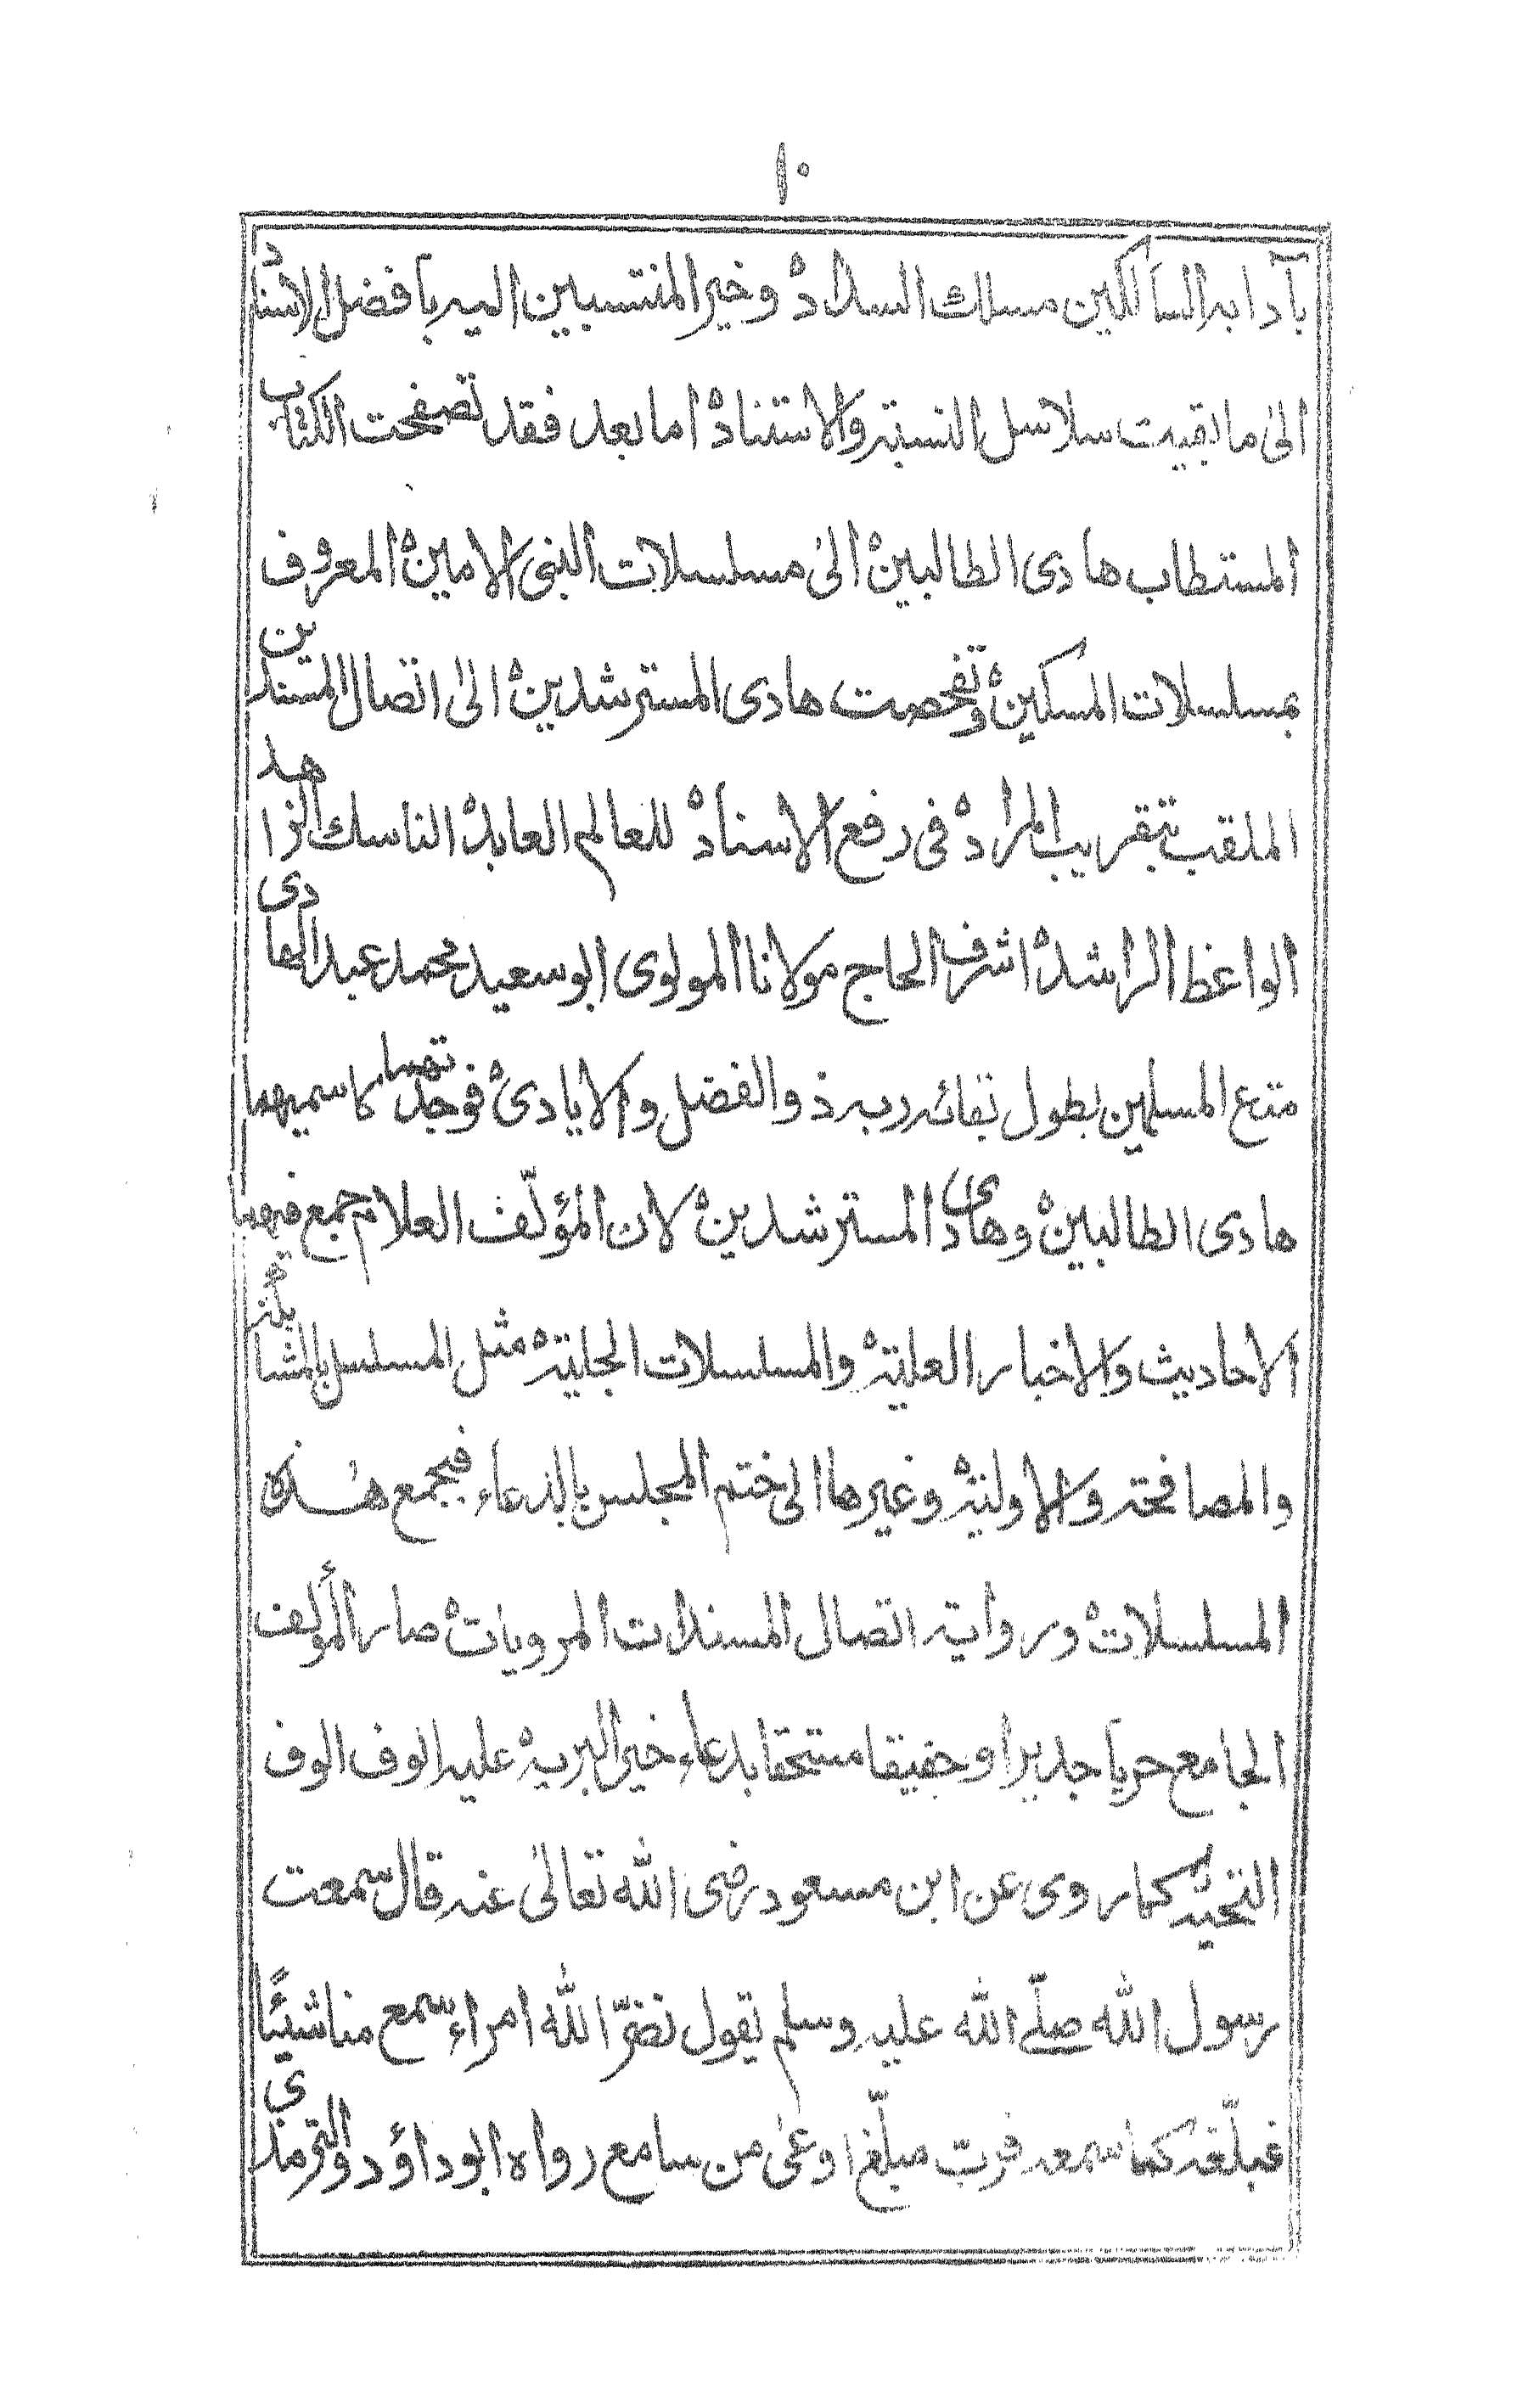 ١٠
بآدابه السالكين مسلك السداد ۀ وخير المنتسبين اليه بافضل الاسناد
الىٰ ما بقيت سلاسل النسبة والاستناد ۀ اما بعد فقد تصفحت الكتاب
المستطاب هادى الطالبين ۀ الىٰ مسلسلات النبى الامين ۀ المعروف
بمسلسلات المسكين ۀ وتفحصت هادى المسترشدين ۀ الىٰ اتصال المسندين
الملقب بتقريب المراد ۀ فى رفع الاسناد ۀ للعالم العابد ۀ الناسك الزاهد
الواعظ الراشد ۀ اشرف الحاج مولانا المولوى ابو سعيد محمد عبد الهادى
متع المسلمين بطول بقائه ربه ذو الفضل والايادى ۀ فوجدتهما كاسميهما
هادى الطالبين ۀ وهادى المسترشدين ۀ لان المؤلّف العلام جمع فيهما
الاحاديث والاخبار العلية ۀ والمسلسلات الجلية ۀ مثل المسلسل بالمشابكة
والمصافحة والاولية ۀ وغيرها الى ختم المجلس بالدعاء فبجمع هٰذه
المسلسلات ۀ ورواية اتصال المسندات المرويات ۀ صار المؤلف
الجامع حريا جديرا وحقيقا مستحقا بدعاء خير البرية ۀ عليه الوف الوف
التحية ۀ كما روى عن ابن مسعود رضى الله تعالىٰ عنه قال سمعت
رسول الله صلّے الله عليه وسلم يقول نضّر الله امراء سمع منا شيئًا
فبلّغه كما سمعه فرب مبلّغ اوعىٰ من سامع رواه ابوداؤد والترمذي